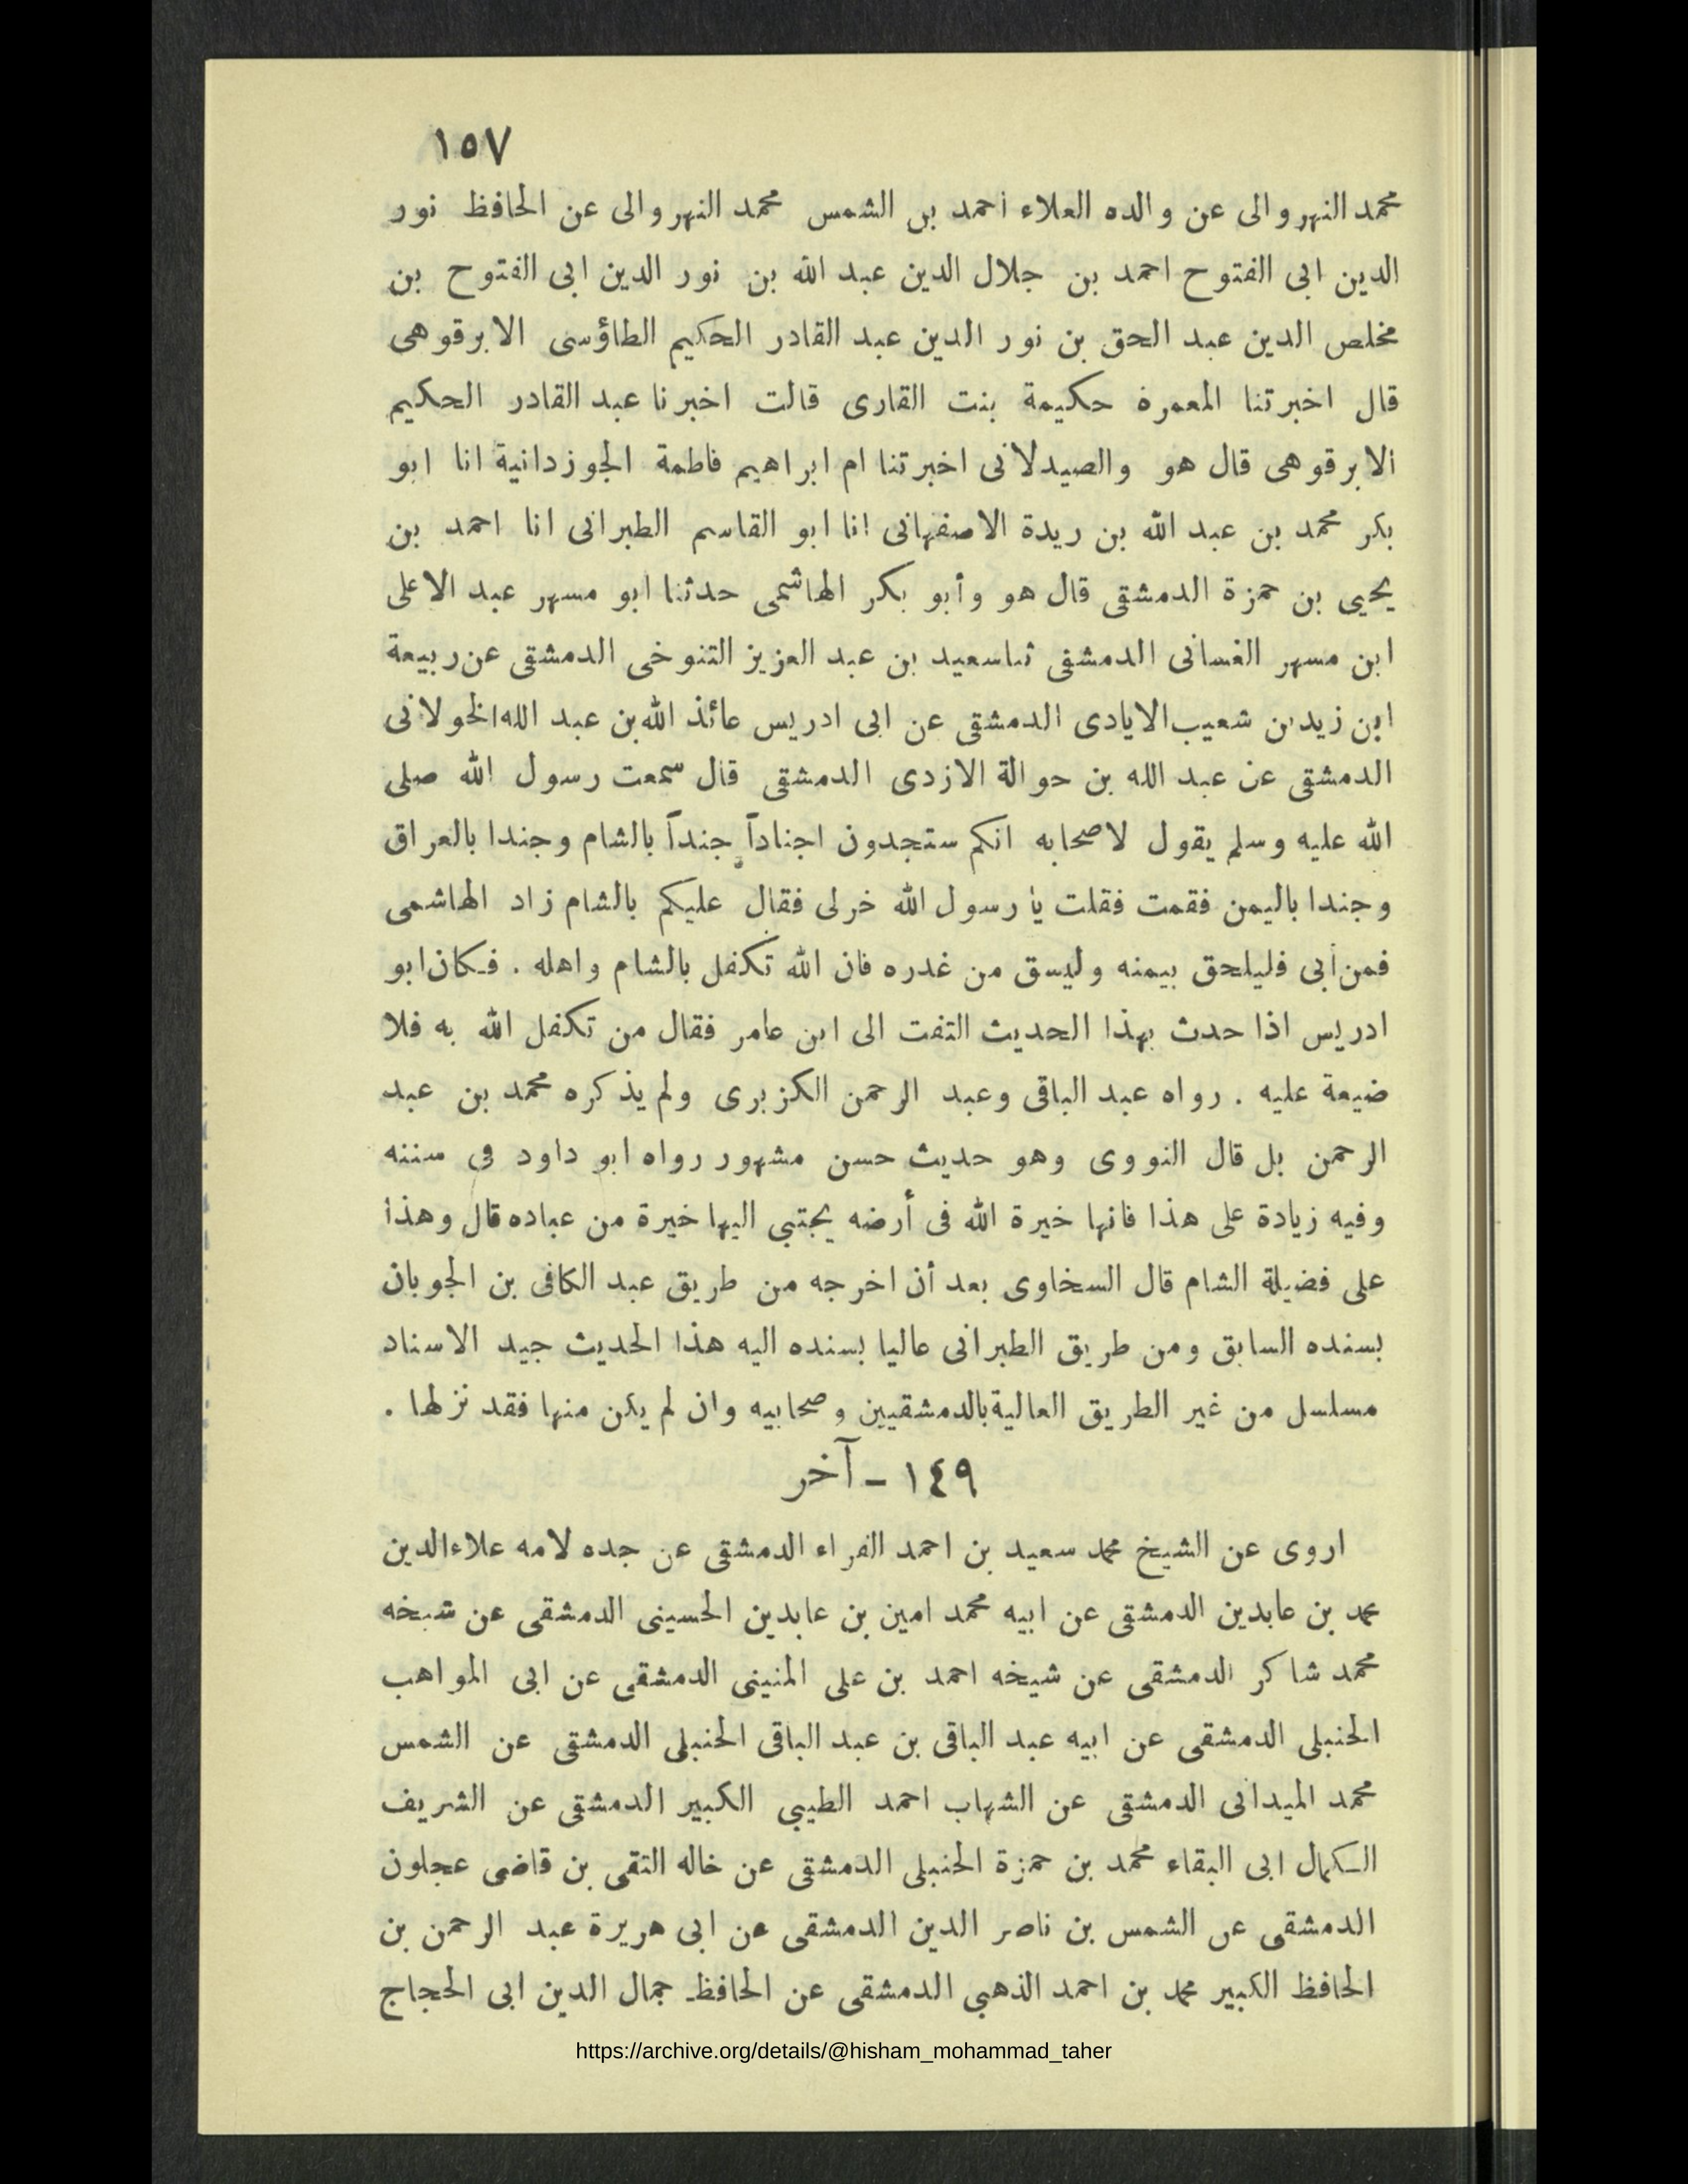 ١٥٧
محمد النهروالى عن والده العلاء أحمد بن الشمس محمد النهروالى عن الحافظ نور
الدين ابى الفتوح احمد بن جلال الدين عبد الله بن نور الدين ابى الفتوح بن
مخلص الدين عبد الحق بن نور الدين عبد القادر الحكيم الطاؤسى الابرقوهى
قال اخبرتنا المعمرة حكيمة بنت القارى قالت اخبرنا عبد القادر الحكيم
الابرقوهى قال هو والصيدلانى اخبرتنا ام ابراهيم فاطمة الجوزدانية انا ابو
بكر محمد بن عبد الله بن ريدة الاصفهانى انا ابو القاسم الطبرانى انا احمد بن
يحيى بن حمزة الدمشقى قال هو وأبو بكر الهاشمى حدثنا ابو مسهر عبد الاعلى
ابن مسهر الغسانى الدمشقى ثنا سعيد بن عبد العزيز التنوخى الدمشقى عن ربيعة
ابن زيد بن شعيب الايادى الدمشقى عن ابى ادريس عائذ الله بن عبد الله الخولانى
الدمشقى عن عبد الله بن حوالة الازدى الدمشقى قال سمعت رسول الله صلى
الله عليه وسلم يقول لاصحابه انكم ستجدون اجناداً جنداً بالشام وجندا بالعراق
وجندا باليمن فقمت فقلت يا رسول الله خرلى فقال عليكم بالشام زاد الهاشمى
فمن أبى فليلحق بيمنه وليسق من غدره فان الله تكفل بالشام واهله . فكان ابو
ادريس اذا حدث بهذا الحديث التفت الى ابن عامر فقال من تكفل الله به فلا
ضيعة عليه . رواه عبد الباقى وعبد الرحمن الكزبرى ولم يذكره محمد بن عبد
الرحمن بل قال النووى وهو حديث حسن مشهور رواه ابو داود فى سننه
وفيه زيادة على هذا فانها خيرة الله فى أرضه يجتبي اليها خيرة من عباده قال وهذا
على فضيلة الشام قال السخاوى بعد أن اخرجه من طريق عبد الكافى بن الجوبان
بسنده السابق ومن طريق الطبرانى عاليا بسنده اليه هذا الحديث جيد الاسناد
مسلسل من غير الطريق العالية بالدمشقيين وصحابيه وان لم يكن منها فقد نزلها .
١٤٩ – آخر
اروى عن الشيخ محمد سعيد بن احمد الفراء الدمشقى عن جده لامه علاء الدين
محمد بن عابدين الدمشقى عن ابيه محمد امين بن عابدين الحسينى الدمشقى عن شيخه
محمد شاكر الدمشقى عن شيخه احمد بن على المنينى الدمشقى عن ابى المواهب
الحنبلى الدمشقى عن ابيه عبد الباقى بن عبد الباقى الحنبلى الدمشقى عن الشمس
محمد الميدانى الدمشقى عن الشهاب احمد الطيبي الكبير الدمشقى عن الشريف
الكمال ابى البقاء محمد بن حمزة الحنبلى الدمشقى عن خاله التقى بن قاضى عجلون
الدمشقى عن الشمس بن ناصر الدين الدمشقى عن ابى هريرة عبد الرحمن بن
الحافظ الكبير محمد بن احمد الذهبي الدمشقى عن الحافظ جمال الدين ابى الحجاج
https://archive.org/details/@hisham_mohammad_taher